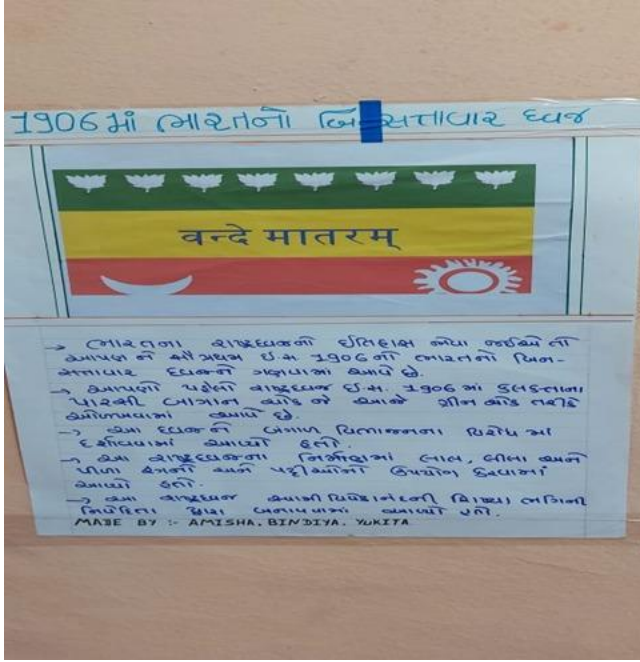 1906 માં ભારતનો બિનસત્તાવાર ધ્વજ
वन्दे मातरम्
→ ભારતના રાષ્ટ્રધ્વજનો ઈતિહાસ જોવા જઈએ તો
આપણ ને સૌ પ્રથમ ઈ.સ. 1906 નો ભારતનો બિન-
સત્તાવાર ધ્વજનો ગણવામાં આવે છે.
→ આપણો પહેલો રાષ્ટ્રધ્વજ ઈ.સ. 1906 માં કલકત્તાના
પારસી બાગાન ચોક ને આજે ગ્રીન ચોક તરીકે
ઓળખવામાં આવે છે.
→ આ ધ્વજને બંગાળ વિભાજનના વિરોધ માં
દર્શાવવામાં આવ્યો હતો.
→ આ રાષ્ટ્રધ્વજના નિર્માણમાં લાલ, લીલા અને
પીળા રંગની અને પટ્ટીઓનો ઉપયોગ કરવામાં
આવ્યો હતો.
→ આ રાષ્ટ્રધ્વજ સ્વામી વિવેકાનંદની શિષ્યા ભગિની
નિવેદિતા દ્વારા બનાવવામાં આવ્યો હતો.
MADE BY :- AMISHA, BINDIYA, YUKITA